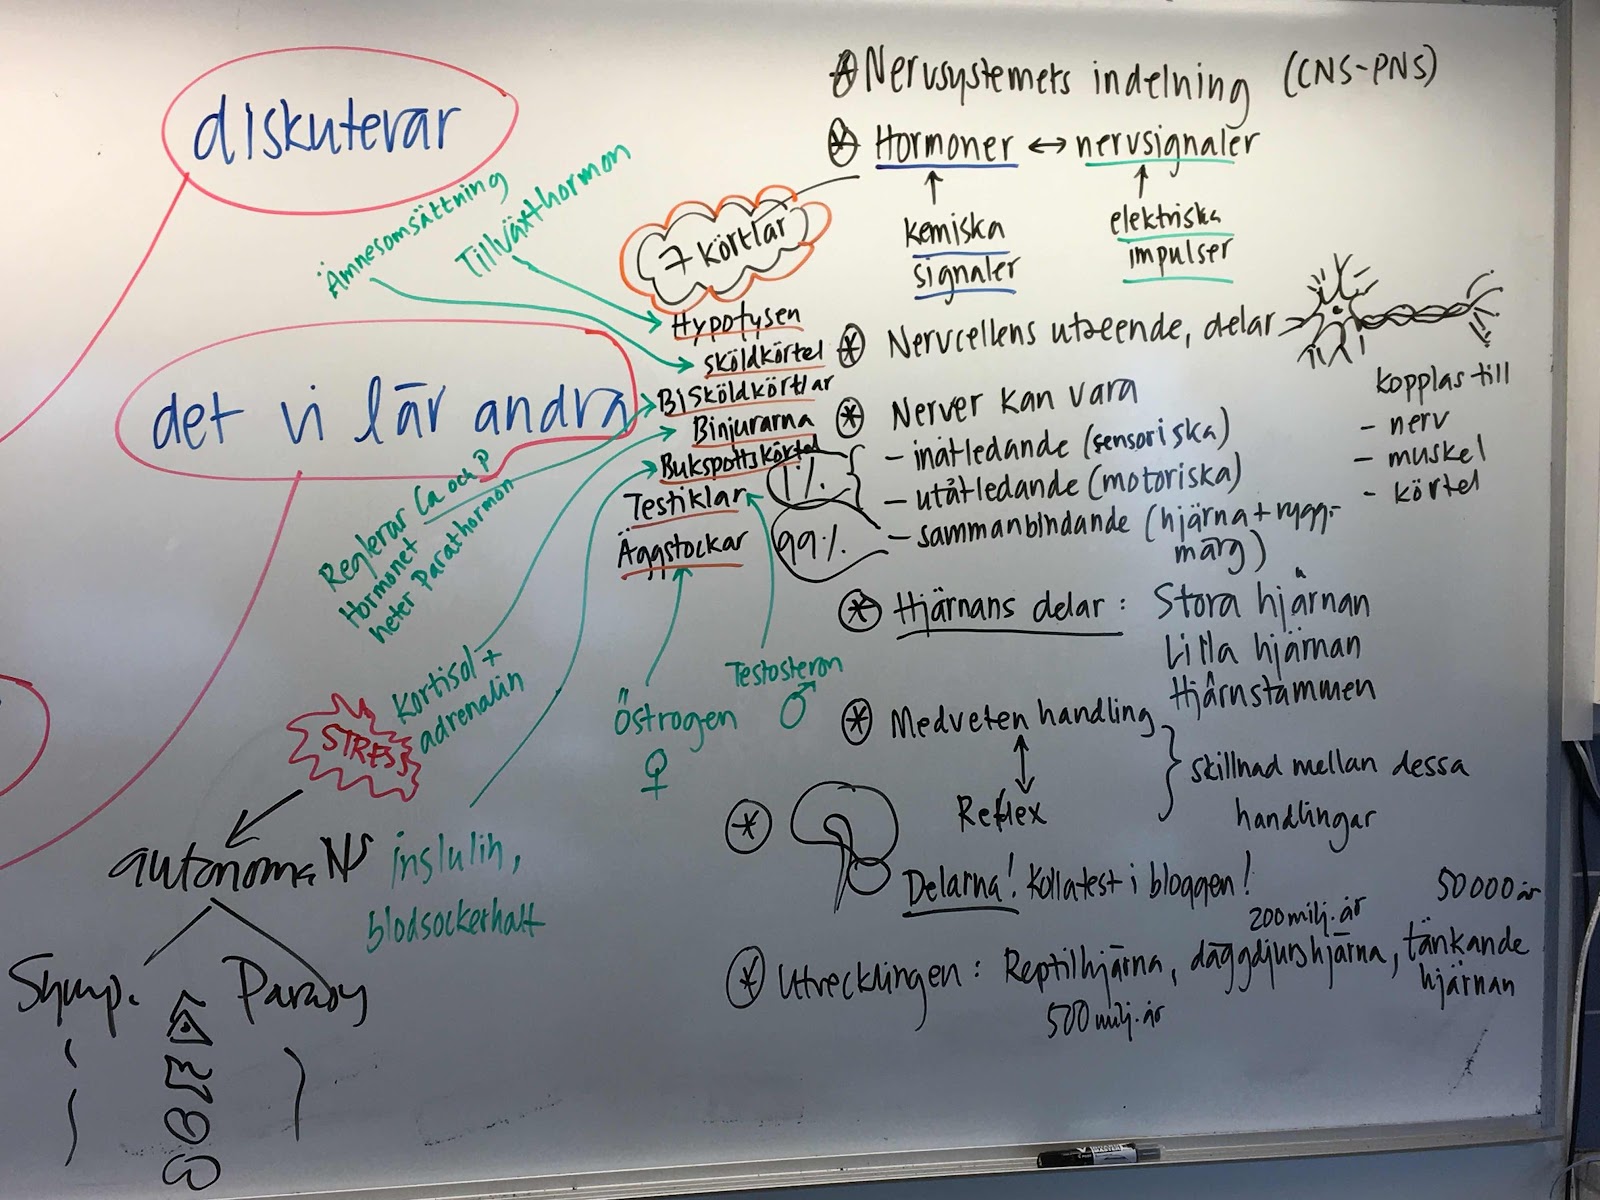 diskuterar
det vi lär andra
Ämnesomsättning
Tillväxthormon
7 körtlar
Hypofysen
sköldkörtel
Bisköldkörtlar
Binjurarna
Bukspottskörtel
Testiklar
Äggstockar
Reglerar Ca och P
Hormonet
heter Parathormon
Kortisol +
adrenalin
STRESS
autonoma NS
Symp.
Parasy
inslulin,
blodsockerhalt
Östrogen
♀
Testosteron
♂
Nervsystemets indelning (CNS-PNS)
Hormoner ↔ nervsignaler
kemiska
signaler
elektriska
impulser
Nervcellens utseende, delar
kopplas till
- nerv
- muskel
- körtel
Nerver kan vara
1%
- inåtledande (sensoriska)
- utåtledande (motoriska)
99%
- sammanbindande (hjärna + rygg-
märg)
Hjärnans delar: Stora hjärnan
Lilla hjärnan
Hjärnstammen
Medveten handling
Reflex
skillnad mellan dessa
handlingar
Delarna! Kolla test i bloggen!
Utvecklingen: Reptilhjärna, däggdjurshjärna, tänkande
hjärnan
500 milj. år
200 milj. år
50 000 år